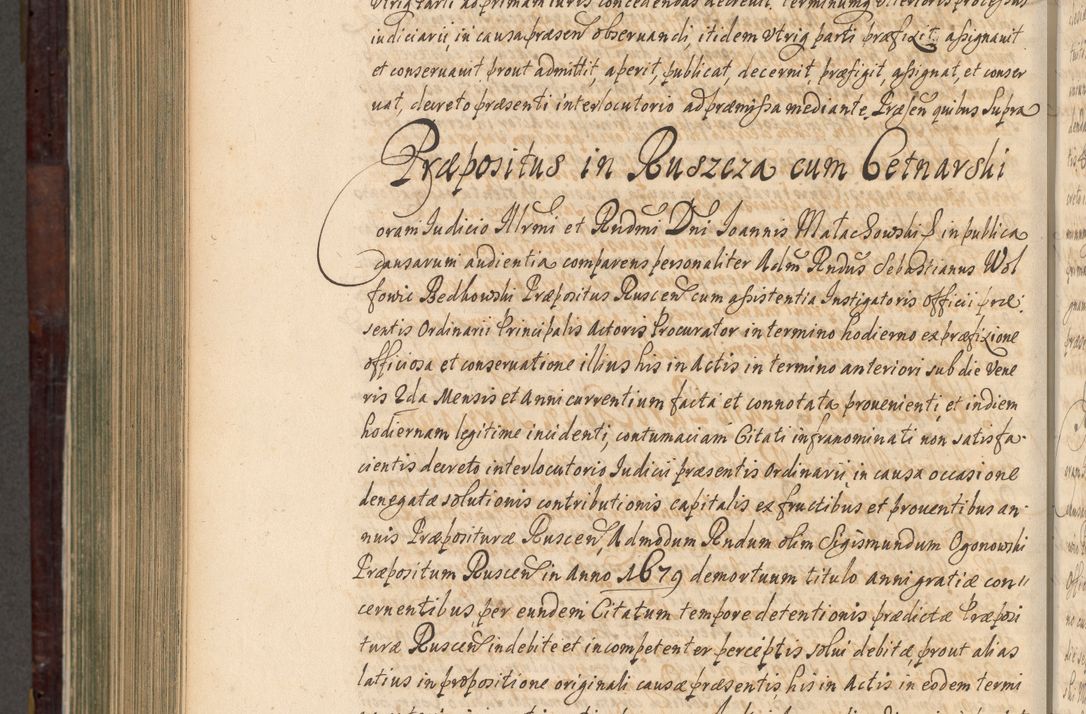 utriq parti ad primam iuris concedendas decrevit, terminumq ulterioris processus
iudiciarii, in causa præsen observandi, itidem utriq parti præfixit, assignavit
et conservavit prout admittit, aperit, publicat, decernit, præfigit, assignat, et conser
vat, decreto præsenti interlocutorio ad præmissa mediante, Præsen quibus supra
Præpositus in Ruszcza cum Cetnarski
Coram Iudicio Illrmi et Rndmi Dni Ioannis Małachowski E in publica
causarum audientia comparens personaliter Adm Rndus Sebastianus Wol
fowic Bedkowski Præpositus Ruscen cum assistentia Instigatoris Officii præ
sentis Ordinarii Principalis Actoris Procurator in termino hodierno ex præfixione
officiosa et conservatione illius his in Actis in termino anteriori sub die Vene
ris 2da Mensis et Anni currentium facta et connotata provenienti, et in diem
hodiernam legitime incidenti, contumaciam Citati infranominati non satisfa
cientis decreto interlocutorio Iudicii præsentis Ordinarii, in causa occasione
denegatæ solutionis contributionis capitalis ex fructibus et proventibus an
nuis Præpositurœ Ruscen, Admodum Rndum olim Sigismundum Ogonowski
Præpositum Ruscen in Anno 1679 demortuum titulo anni gratiæ con
cernentibus, per eundem Citatum tempore detentionis prædictæ Præposi
turæ Ruscen indebite et incompetenter perceptis solui debitæ prout alias
latius in propositione originali causæ præsentis, his in Actis in eodem termi